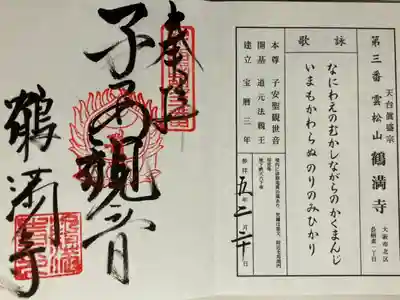 第三番
天台眞盛宗
雲松山 鶴満寺
大阪市北区
長柄東一丁目
詠歌
なにわえのむかしながらのかくまんじ
いまもかわらぬのりのみひかり
本尊 子安聖観世音
開基 道元法親王
建立 宝暦三年
参拝 五年 二月 二十日
奉拝
子安観音
鶴満寺